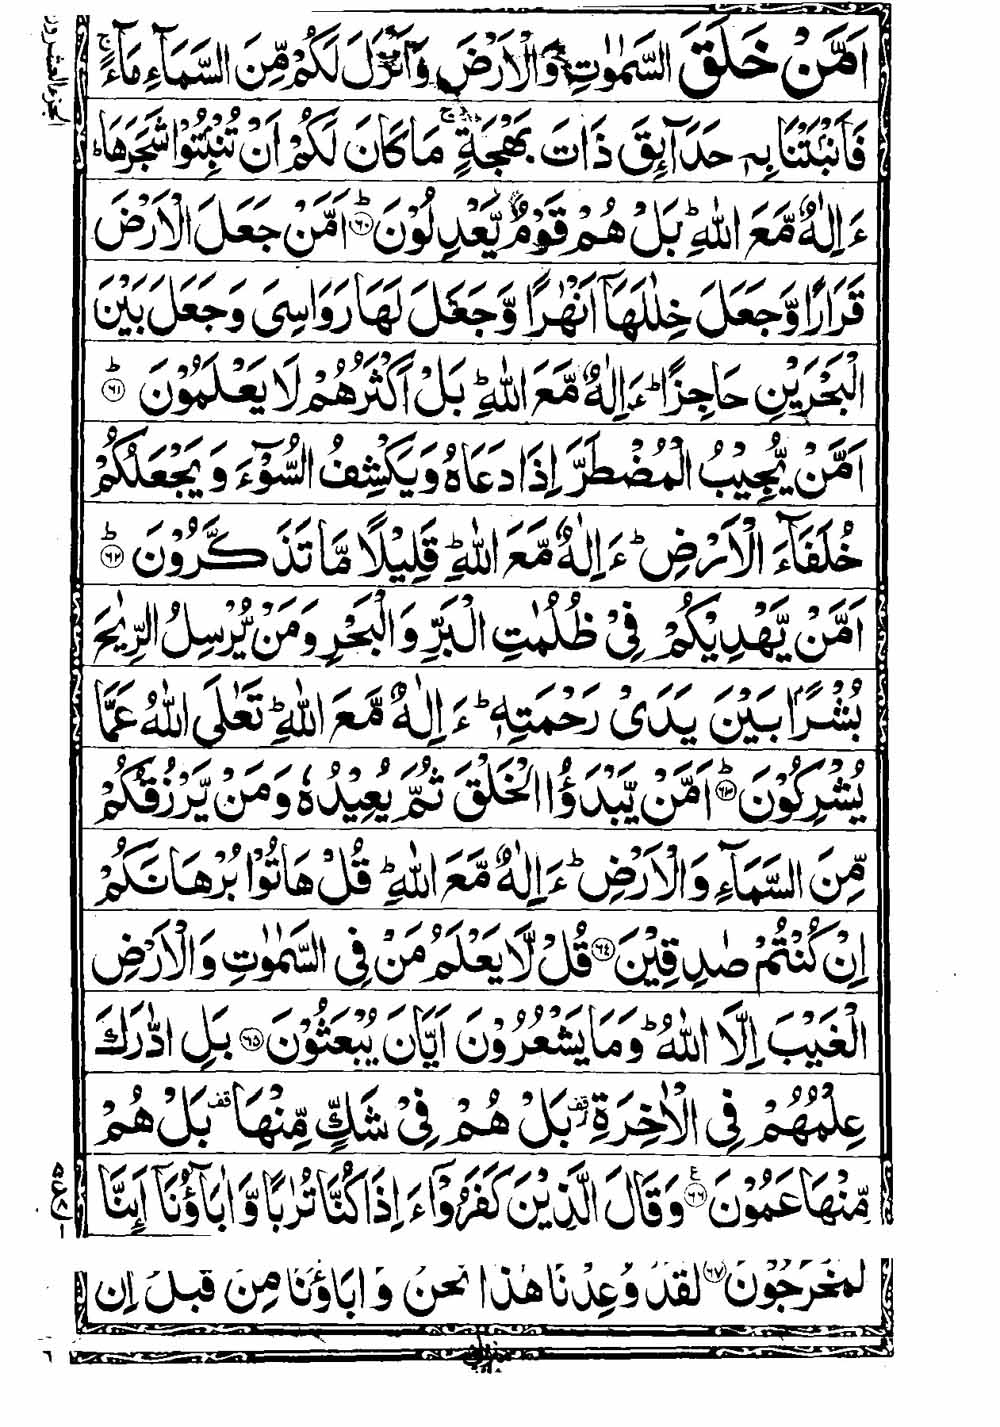 الجزء العشرون
اَمَّنْ خَلَقَ السَّمٰوٰتِ وَالْاَرْضَ وَاَنْزَلَ لَكُمْ مِّنَ السَّمَآءِ مَآءً ۚ
فَاَنْۢبَتْنَا بِهٖ حَدَآئِقَ ذَاتَ بَهْجَةٍ ۚ مَا كَانَ لَكُمْ اَنْ تُنْۢبِتُوْا شَجَرَهَا ؕ
ءَاِلٰهٌ مَّعَ اللّٰهِ ؕ بَلْ هُمْ قَوْمٌ يَّعْدِلُوْنَ ؕ ﴿۶۰﴾ اَمَّنْ جَعَلَ الْاَرْضَ
قَرَارًا وَّجَعَلَ خِلٰلَهَاۤ اَنْهٰرًا وَّجَعَلَ لَهَا رَوَاسِىَ وَجَعَلَ بَيْنَ
الْبَحْرَيْنِ حَاجِزًا ؕ ءَاِلٰهٌ مَّعَ اللّٰهِ ؕ بَلْ اَكْثَرُهُمْ لَا يَعْلَمُوْنَ ؕ ﴿۶۱﴾
اَمَّنْ يُّجِيْبُ الْمُضْطَرَّ اِذَا دَعَاهُ وَيَكْشِفُ السُّوْٓءَ وَيَجْعَلُكُمْ
خُلَفَآءَ الْاَرْضِ ؕ ءَاِلٰهٌ مَّعَ اللّٰهِ ؕ قَلِيْلًا مَّا تَذَكَّرُوْنَ ؕ ﴿۶۲﴾
اَمَّنْ يَّهْدِيْكُمْ فِىْ ظُلُمٰتِ الْبَرِّ وَالْبَحْرِ وَمَنْ يُّرْسِلُ الرِّيٰحَ
بُشْرًۢا بَيْنَ يَدَىْ رَحْمَتِهٖ ؕ ءَاِلٰهٌ مَّعَ اللّٰهِ ؕ تَعٰلَى اللّٰهُ عَمَّا
يُشْرِكُوْنَ ؕ ﴿۶۳﴾ اَمَّنْ يَّبْدَؤُا الْخَلْقَ ثُمَّ يُعِيْدُهٗ وَمَنْ يَّرْزُقُكُمْ
مِّنَ السَّمَآءِ وَالْاَرْضِ ؕ ءَاِلٰهٌ مَّعَ اللّٰهِ ؕ قُلْ هَاتُوْا بُرْهَانَكُمْ
اِنْ كُنْتُمْ صٰدِقِيْنَ ﴿۶۴﴾ قُلْ لَّا يَعْلَمُ مَنْ فِى السَّمٰوٰتِ وَالْاَرْضِ
الْغَيْبَ اِلَّا اللّٰهُ ؕ وَمَا يَشْعُرُوْنَ اَيَّانَ يُبْعَثُوْنَ ﴿۶۵﴾ بَلِ ادّٰرَكَ
عِلْمُهُمْ فِى الْاٰخِرَةِ قف بَلْ هُمْ فِىْ شَكٍّ مِّنْهَا قف بَلْ هُمْ
مِّنْهَا عَمُوْنَ ﴿۶۶﴾ ع وَقَالَ الَّذِيْنَ كَفَرُوْۤا ءَاِذَا كُنَّا تُرٰبًا وَّاٰبَآؤُنَاۤ اَئِنَّا
لَمُخْرَجُوْنَ ﴿۶۷﴾ لَقَدْ وُعِدْنَا هٰذَا نَحْنُ وَاٰبَآؤُنَا مِنْ قَبْلُ اِنْ